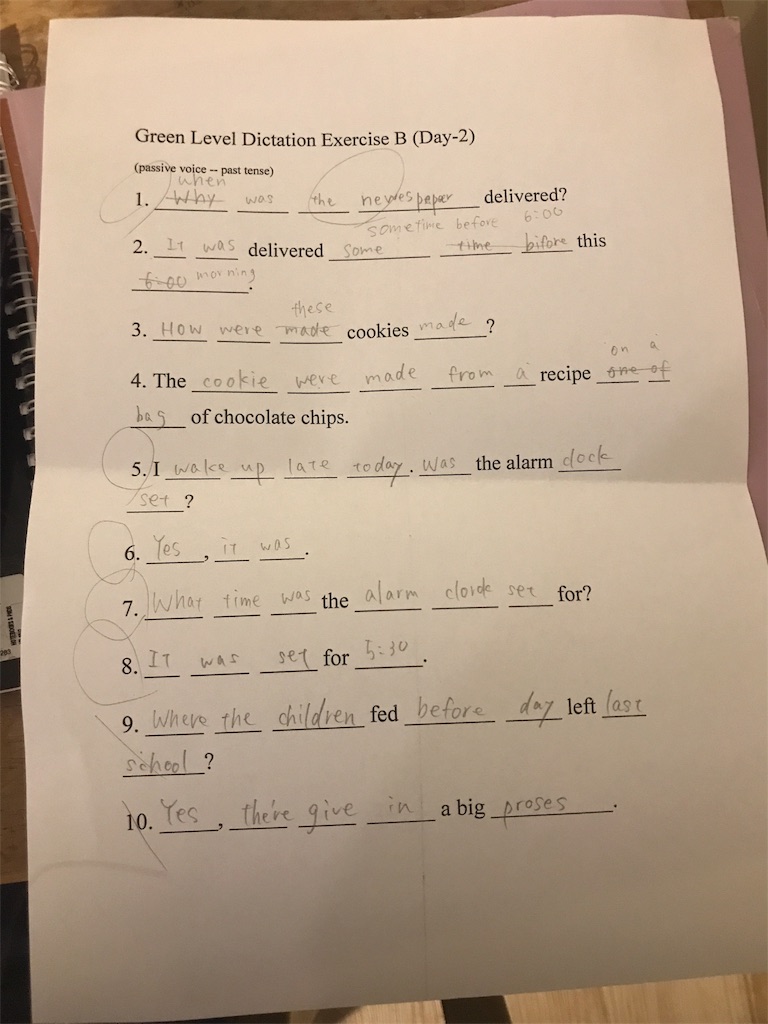 Green Level Dictation Exercise B (Day-2)
(passive voice -- past tense)
when
1. Why was the newespeper delivered?
sometime before 6:00
2. It was delivered some time bifore this
6:00 morning.
these
3. How were made cookies made?
on a
4. The cookie were made from a recipe one of
bag of chocolate chips.
5. I wake up late today. Was the alarm clock
set?
6. Yes, it was.
7. What time was the alarm clock set for?
8. It was set for 5:30.
9. Where the children fed before day left last
school?
10. Yes, there give in a big proses.